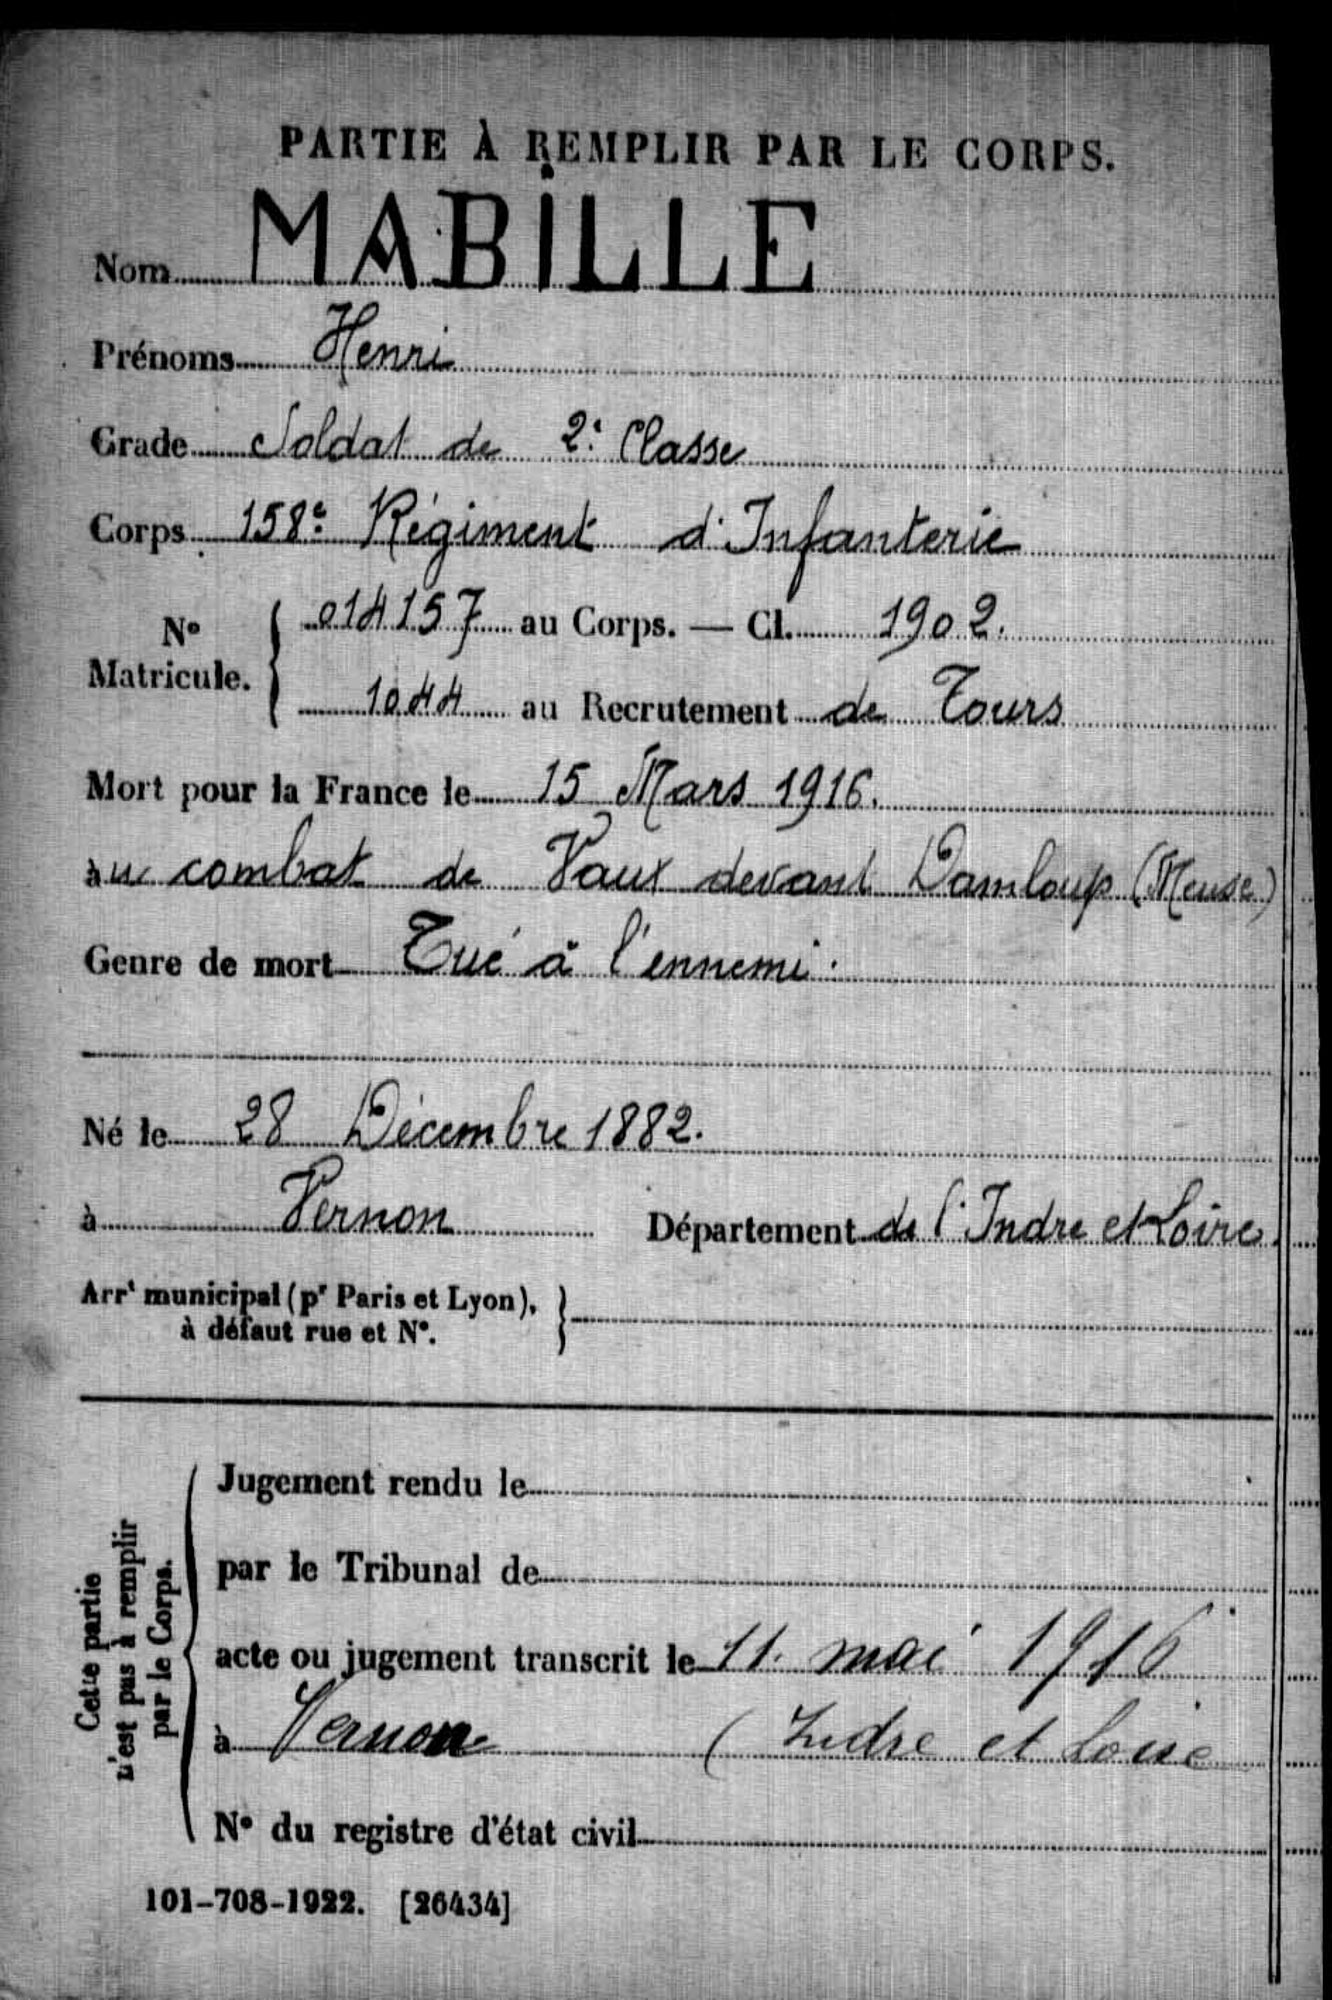 PARTIE À REMPLIR PAR LE CORPS.
Nom MABILLE
Prénoms Henri
Grade Soldat de 2e Classe
Corps 158e Régiment d'Infanterie
N° Matricule. 014157 au Corps. — Cl. 1902.
1044 au Recrutement de Tours
Mort pour la France le 15 Mars 1916.
au combat de Vaux devant Damloup (Meuse)
Genre de mort Tué à l'ennemi.
Né le 28 Décembre 1882.
à Vernon Département de l'Indre et Loire.
Arrt municipal (pr Paris et Lyon),
à défaut rue et N°.
Cette partie
n'est pas à remplir
par le Corps.
Jugement rendu le
par le Tribunal de
acte ou jugement transcrit le 11 mai 1916
à Vernon (Indre et Loire
N° du registre d'état civil
101-708-1922. [26434]